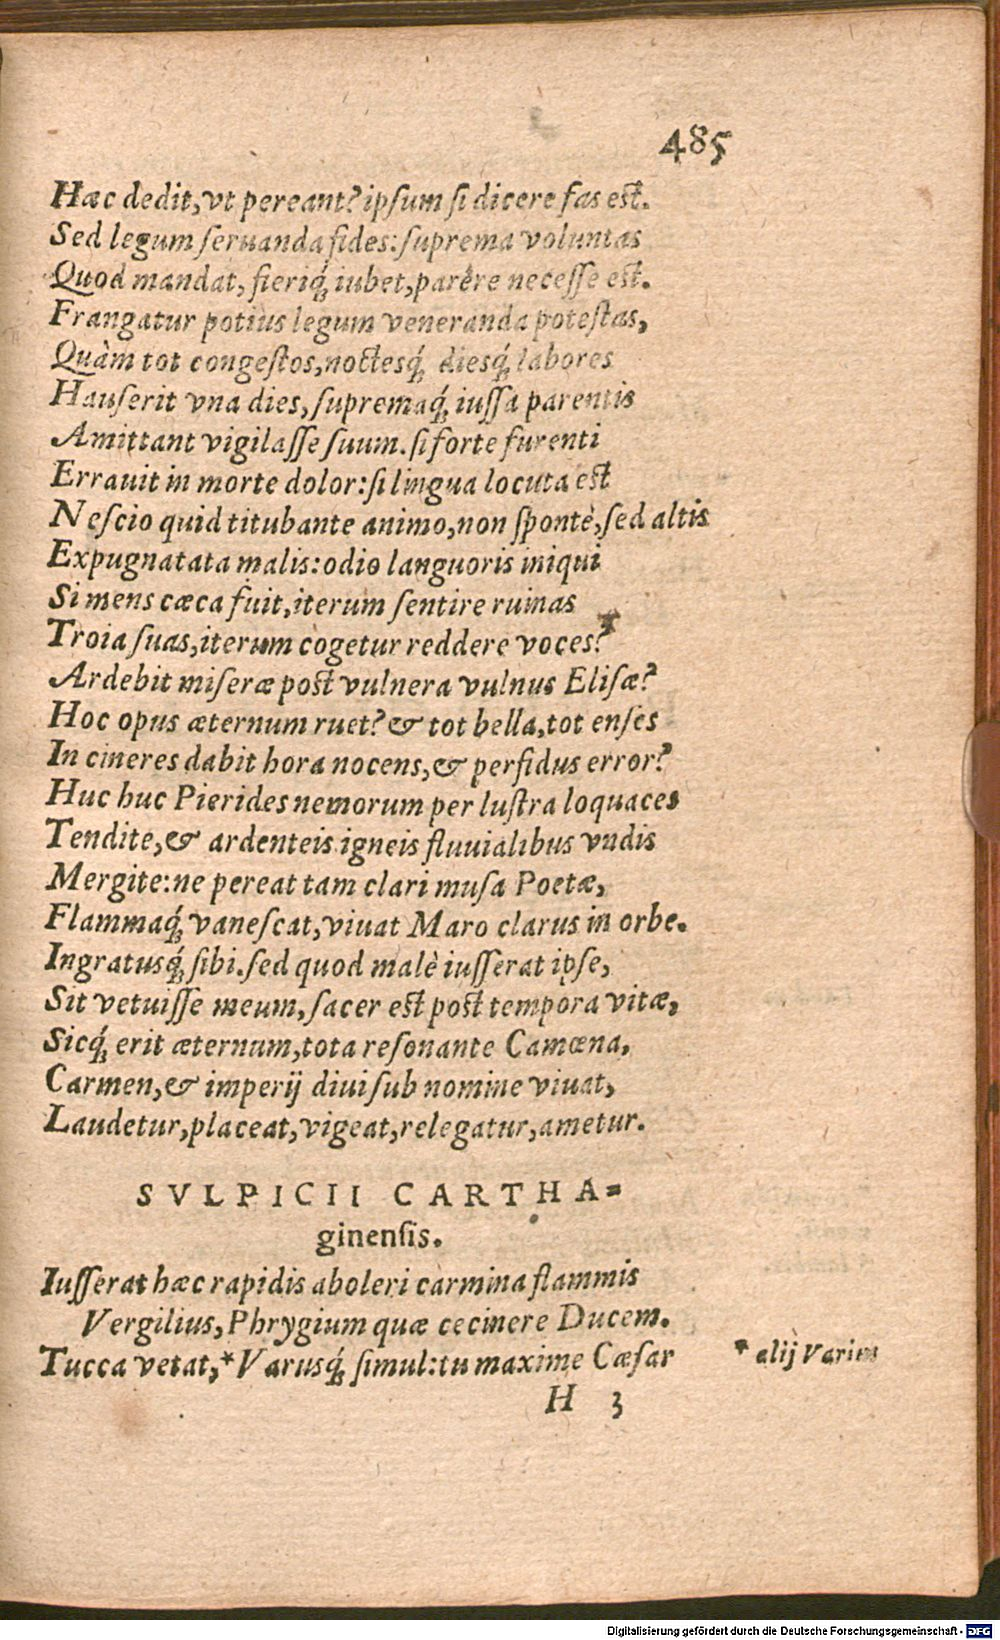 485
Hæc dedit, vt pereant? ipsum si dicere fas est.
Sed legum seruanda fides: suprema voluntas
Quod mandat, fieriq́; iubet, parêre necesse est.
Frangatur potiùs legum veneranda potestas,
Quàm tot congestos, noctesq́; diesq́; labores
Hauserit vna dies, supremaq́; iussa parentis
Amittant vigilasse suum. si forte furenti
Errauit in morte dolor: si lingua locuta est
Nescio quid titubante animo, non spontè, sed altis
Expugnatata malis: odio languoris iniqui
Si mens cæca fuit, iterum sentire ruinas
Troia suas, iterum cogetur reddere voces?
Ardebit miseræ post vulnera vulnus Elisæ?
Hoc opus æternum ruet? & tot bella, tot enses
In cineres dabit hora nocens, & perfidus error?
Huc huc Pierides nemorum per lustra loquaces
Tendite, & ardenteis igneis fluuialibus vndis
Mergite: ne pereat tam clari musa Poetæ,
Flammaq́; vanescat, viuat Maro clarus in orbe.
Ingratusq́; sibi. sed quod malè iusserat ipse,
Sit vetuisse meum, sacer est post tempora vitæ,
Sicq́; erit æternum, tota resonante Camœna,
Carmen, & imperij diui sub nomine viuat,
Laudetur, placeat, vigeat, relegatur, ametur.
SVLPICII CARTHA=
ginensis.
Iusserat hæc rapidis aboleri carmina flammis
Vergilius, Phrygium quæ cecinere Ducem.
Tucca vetat, * Varusq́; simul: tu maxime Cæsar
* alij Varius
H 3
Digitalisierung gefördert durch die Deutsche Forschungsgemeinschaft - DFG